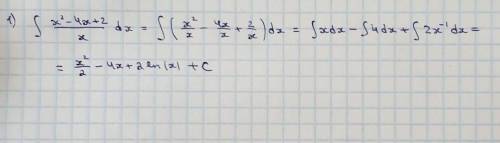 1) ∫ (x² - 4x + 2)/x dx = ∫ (x²/x - 4x/x + 2/x) dx = ∫ x dx - ∫ 4 dx + ∫ 2x⁻¹ dx =
= x²/2 - 4x + 2 ln|x| + C